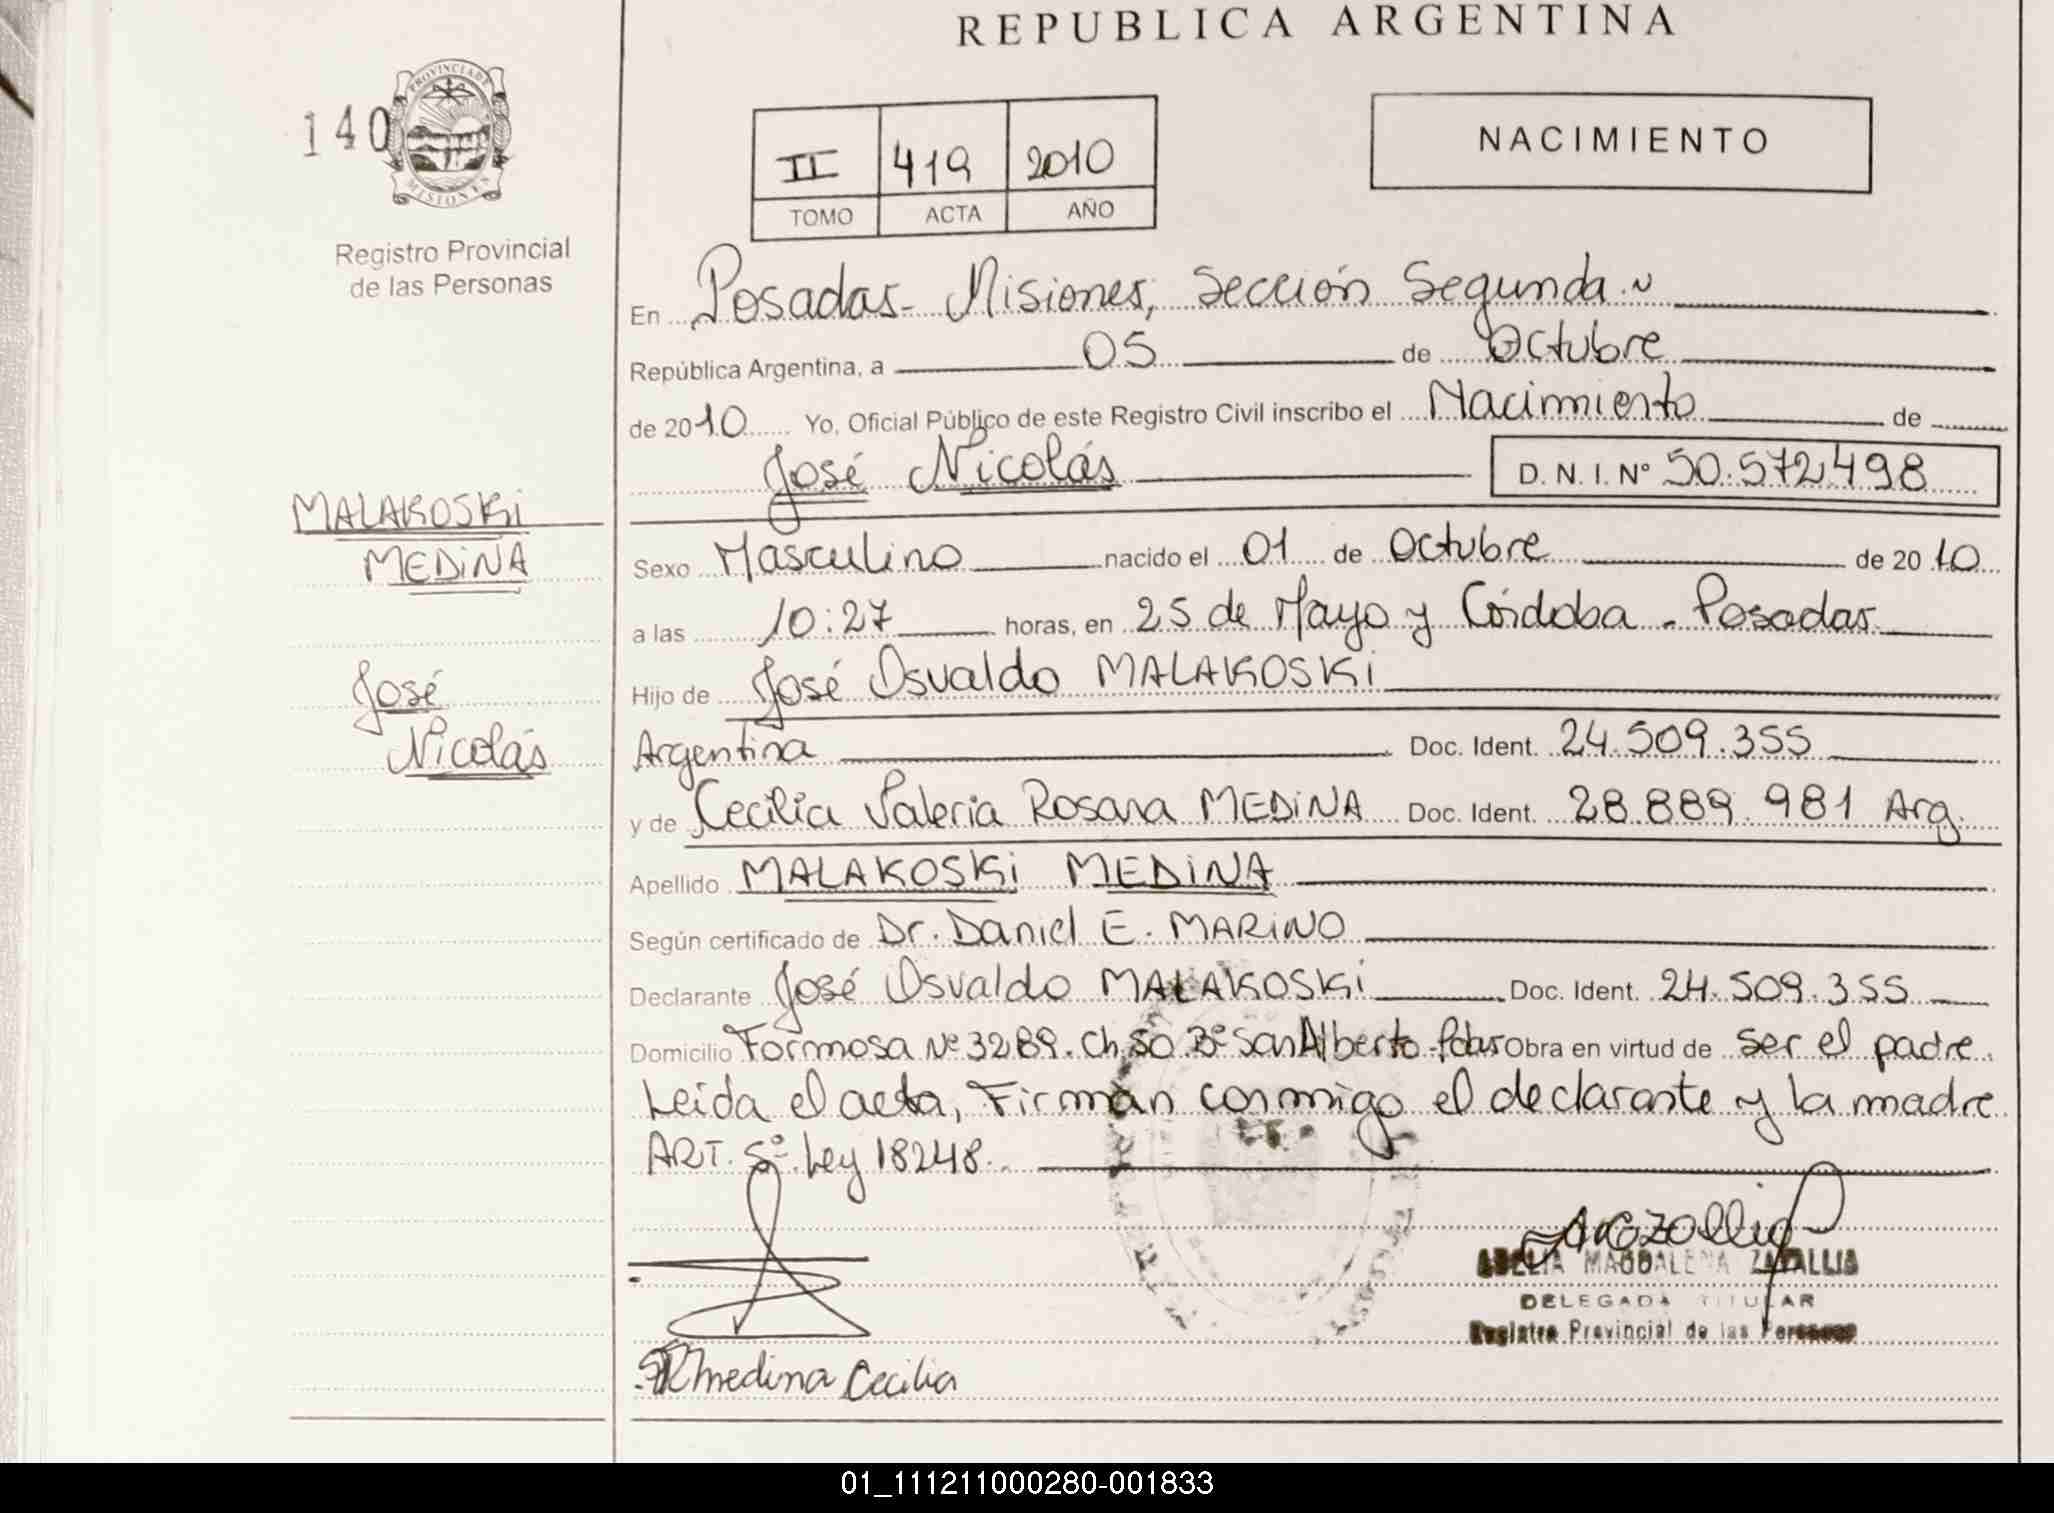 REPUBLICA ARGENTINA
140
PROVINCIA DE
MISIONES
Registro Provincial
de las Personas
II 419 2010
TOMO ACTA AÑO
NACIMIENTO
En Posadas - Misiones, Sección Segunda
República Argentina, a 05 de Octubre
de 2010 Yo, Oficial Público de este Registro Civil inscribo el Nacimiento de
José Nicolás D.N.I. Nº 50.572.498
MALAKOSKi
MEDiNA
José
Nicolás
Sexo Masculino nacido el 01 de Octubre de 2010
a las 10:27 horas, en 25 de Mayo y Córdoba - Posadas
Hijo de José Osvaldo MALAKOSKi
Argentina Doc. Ident. 24.509.355
y de Cecilia Valeria Rosana MEDiNA Doc. Ident. 28.889.981 Arg.
Apellido MALAKOSKi MEDiNA
Según certificado de Dr. Daniel E. MARiNO
Declarante José Osvaldo MALAKOSKi Doc. Ident. 24.509.355
Domicilio Formosa Nº 3289. Ch. 50 Bº San Alberto - Obra en virtud de ser el padre.
Leída el acta, Firman conmigo el declarante y la madre
ART. 5º Ley 18248.
MAGDALENA
DELEGADA TITULAR
Registro Provincial de las Personas
medina Cecilia
01_111211000280-001833